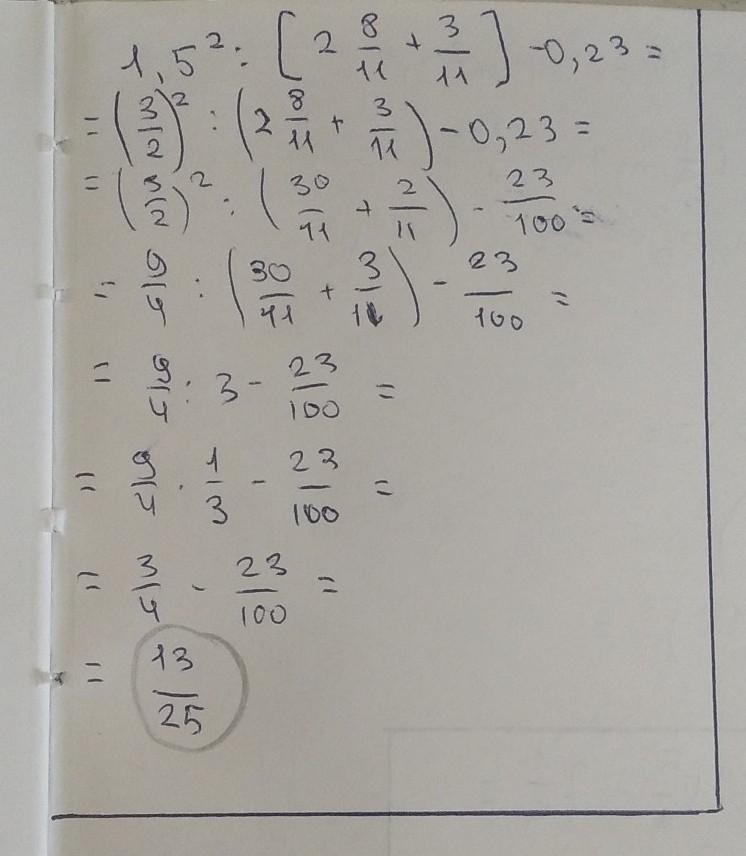 1,5²: [2 8/11 + 3/11] - 0,23 =
= (3/2)² : (2 8/11 + 3/11) - 0,23 =
= (3/2)² : (30/11 + 2/11) - 23/100 =
= 9/4 : (30/11 + 3/11) - 23/100 =
= 9/4 : 3 - 23/100 =
= 9/4 · 1/3 - 23/100 =
= 3/4 - 23/100 =
= 13/25